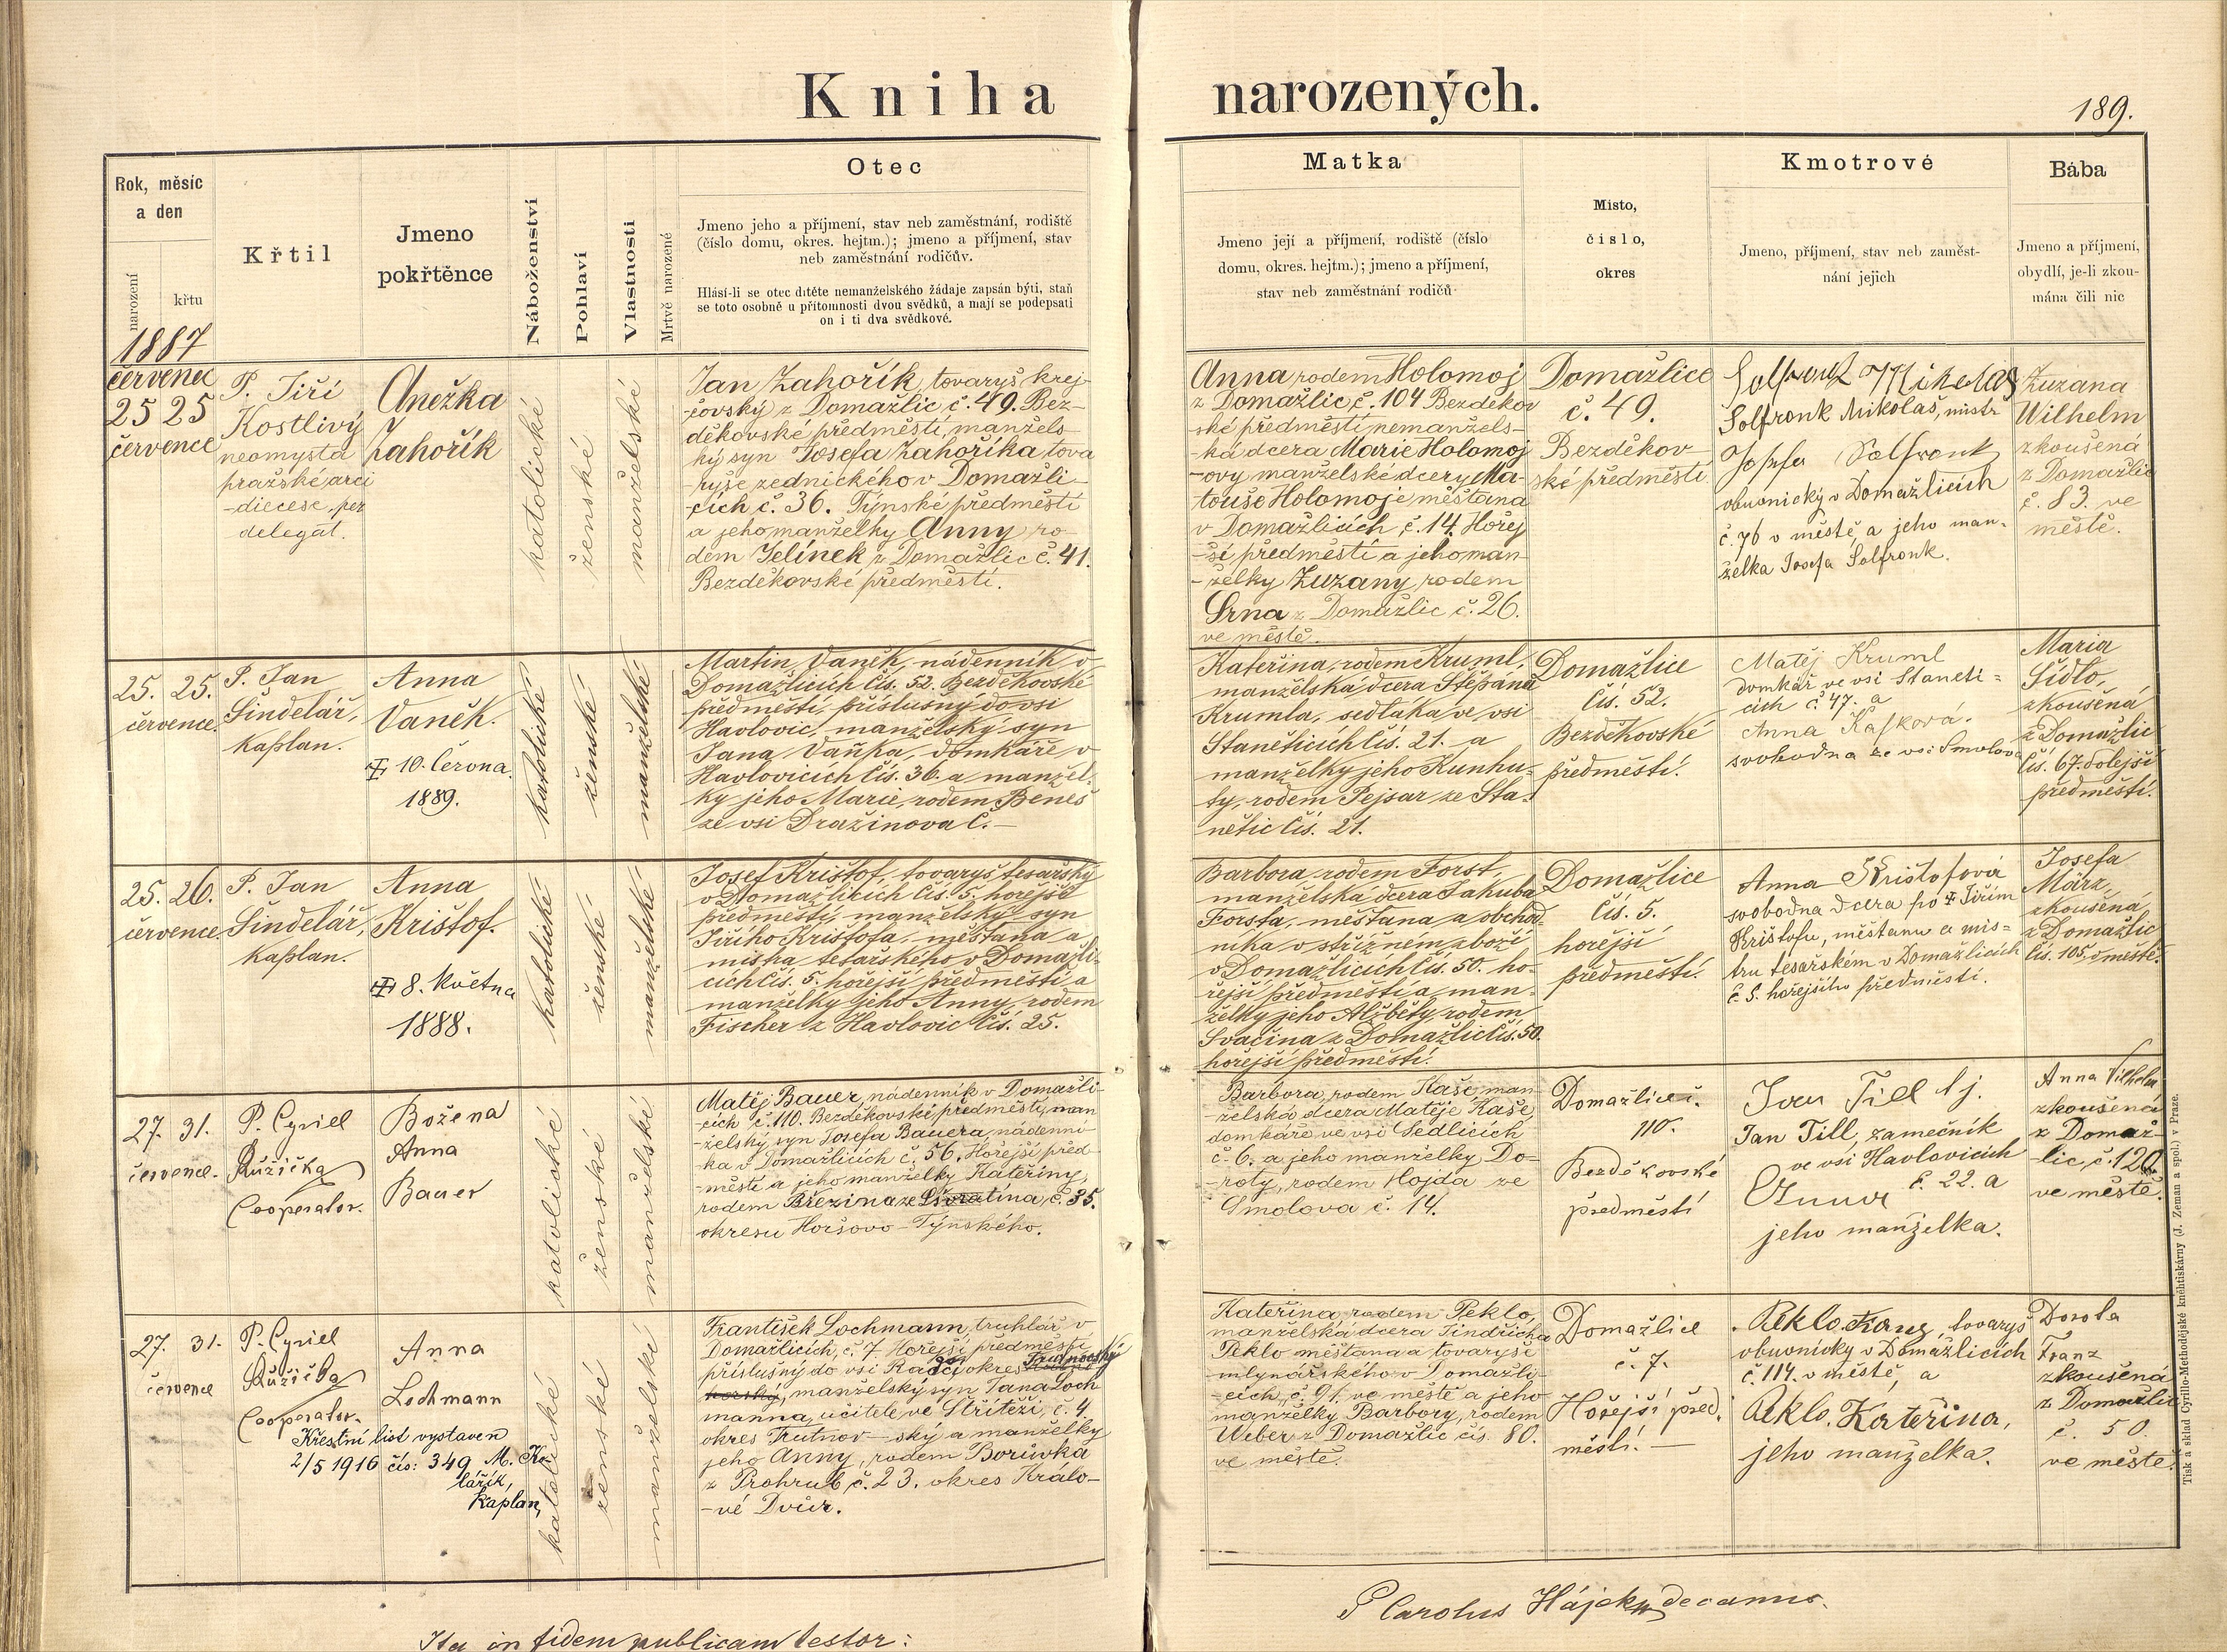 Kniha narozených.
189.
Rok, měsíc
a den
narození
křtu
1887
Křtil
Jmeno
pokřtěnce
Náboženství
Pohlaví
Vlastnosti
Mrtvě narozené
Otec
Jmeno jeho a příjmení, stav neb zaměstnání, rodiště
(číslo domu, okres. hejtm.); jmeno a příjmení, stav
neb zaměstnání rodičův.
Hlásí-li se otec dítěte nemanželského žádaje zapsán býti, staň
se toto osobně u přítomnosti dvou svědků, a mají se podepsati
on i ti dva svědkové.
Matka
Jmeno její a příjmení, rodiště (číslo
domu, okres. hejtm.); jmeno a příjmení,
stav neb zaměstnání rodičů
Místo,
číslo,
okres
Kmotrové
Jmeno, příjmení, stav neb zaměst-
nání jejich
Bába
Jmeno a příjmení,
obydlí, je-li zkou-
mána čili nic
červenec
25 25
července
P. Jiří
Kostlivý
neomysta
pražské arci
-diecese, per
delegat.
Anežka
Zahořík
katolické
ženské
manželské
Jan Zahořík, tovaryš krej-
-čovský z Domažlic č. 49. Bez-
děkovské předměstí, manžels-
ký syn Josefa Zahoříka tova
ryše zednického v Domažli-
-cích č. 36. Týnské předměstí
a jeho manželky Anny ro-
dem Jelínek z Domažlic č. 41.
Bezděkovské předměstí.
Anna rodem Holomoj
z Domažlic č. 104 Bezděkov
-ské předměstí nemanžels-
-ká dcera Marie Holomoj
-ovy manželské dcery Ma-
touše Holomoje měštana
v Domažlicích č. 14. Hořej
-ší předměstí a jeho man
-želky Zuzany, rodem
Srna z Domažlic č. 26.
ve městě.
Domažlice
č. 49.
Bezděkov
ské předměstí
Solfronk Mikolaš
Solfronk Mikolaš, mistr
Josefa Solfronk
obuvnický v Domažlicích
č. 76 v městě, a jeho man-
želka Josefa Solfronk.
Zuzana
Wilhelm
zkoušená
z Domažlic
č. 83. ve
městě.
25. 25.
července.
P. Jan
Šindelář,
kaplan.
Anna
Vaněk.
10. Června
1889.
katolické
ženské
manželské
Martin Vaněk, nádenník v
Domažlicích čís. 52. Bezděkovské
předměstí, příslušný do vsi
Havlovic, manželský syn
Jana Vaňka, domkáře v
Havlovicích čís. 36. a manžel-
ky jeho Marie, rodem Beneš
ze vsi Dražinova č. —
Kateřina, rodem Kruml,
manželská dcera Štěpána
Krumla, sedláka ve vsi
Staněticích čís. 21. a
manželky jeho Kunhu-
ty, rodem Pejsar ze Sta-
nětic čís. 21.
Domažlice
čís. 52.
Bezděkovské
předměstí.
Matěj Kruml
domkář ve vsi Staněti=
cích č 47. a
Anna Kasková.
svobodna ze vsi Smolova
Maria
Sídlo,
zkoušená
z Domažlic
čís. 67. dolejší
předměstí.
25. 26.
července.
P. Jan
Šindelář,
kaplan.
Anna
Krištof.
8. Května
1888.
katolické
ženské
manželské
Josef Krištof, tovaryš tesařský
v Domažlicích čís. 5. hořejší
předměstí, manželský syn
Jiřího Krištofa, měštana a
mistra tesařského v Domažli-
cích čís. 5. hořejší předměstí a
manželky jeho Anny, rodem
Fischer z Havlovic čís. 25.
Barbora, rodem Forst,
manželská dcera Jakuba
Forsta, měštana a obchod-
níka v střižném zboží
v Domažlicích čís. 50. ho-
řejší předměstí a man-
želky jeho Alžběty, rodem
Svačina z Domažlic čís. 50.
hořejší předměstí.
Domažlice
čís. 5.
hořejší
předměstí.
Anna Krištofová
svobodna dcera po Jiřím
Krištofu, měštanu a mis=
tru tesařském v Domažlicích
č. 5. hořejšího předměstí.
Josefa
März,
zkoušená,
z Domažlic
čís. 105. v městě.
27. 31.
července.
P. Cyriel
Růžička
Cooperator.
Božena
Anna
Bauer
katolické
ženské
manželské
Matěj Bauer, nádenník v Domažli-
-cích č. 110. Bezděkovské předměstí, man
-želský syn Josefa Bauera, nádenní-
-ka v Domažlicích č. 56. Hořejší před
-městí a jeho manželky Kateřiny,
rodem Březina ze Štvratína, č. 35.
okresu Horšovo-Týnského.
Barbora, rodem Kaše, man-
-želská dcera Matěje Kaše,
domkáře ve vsi Sedlicích
č. 6. a jeho manželky Do-
-roty, rodem Hojda ze
Smolova č. 14.
Domažlice č.
110.
Bezděkovské
předměstí
Jan Till
Jan Till, zamečník
ve vsi Havlovicích
č. 22. a
Anna
jeho manželka.
Anna Vilhelm
zkoušená
z Domaž-
lic, č. 120.
ve městě.
27. 31.
července
P. Cyriel
Růžička
Cooperator.
Anna
Lochmann
Křestní list vystaven
2/5 1916 čís: 349 M. Ko-
lařík,
Kaplan,
katolické
ženské
manželské
František Lochmann, truhlář v
Domažlicích, č. 7 Hořejší předměstí
příslušný do vsi Radči okres Trutnovský
, manželský syn Jana Loch
manna, učitele ve Střítěži, č. 4
okres Trutnov-ský a manželky
jeho Anny, rodem Borůvka
z Prohrub č. 23. okres Králo-
-vé Dvůr.
Kateřina, rodem Peklo,
manželská dcera Jindřicha
Peklo měštana a tovaryše
mlynářského v Domažli-
-cích, č. 91. ve městě a jeho
manželky Barbory, rodem
Weber z Domažlic čís. 80.
ve městě.
Domažlice
č. 7.
Hořejší před.
městí. —
Peklo Franz, tovaryš
obuvnický v Domažlicích
č. 114. v městě, a
Peklo. Kateřina,
jeho manželka.
Dorota
Franz
zkoušená
z Domažlic
č. 50.
ve městě.
Ita in fidem publicam testor:
P Carolus Hájek decanus.
Tisk a sklad Cyrillo-Methodějské knihtiskárny (J. Zeman a spol.) v Praze.